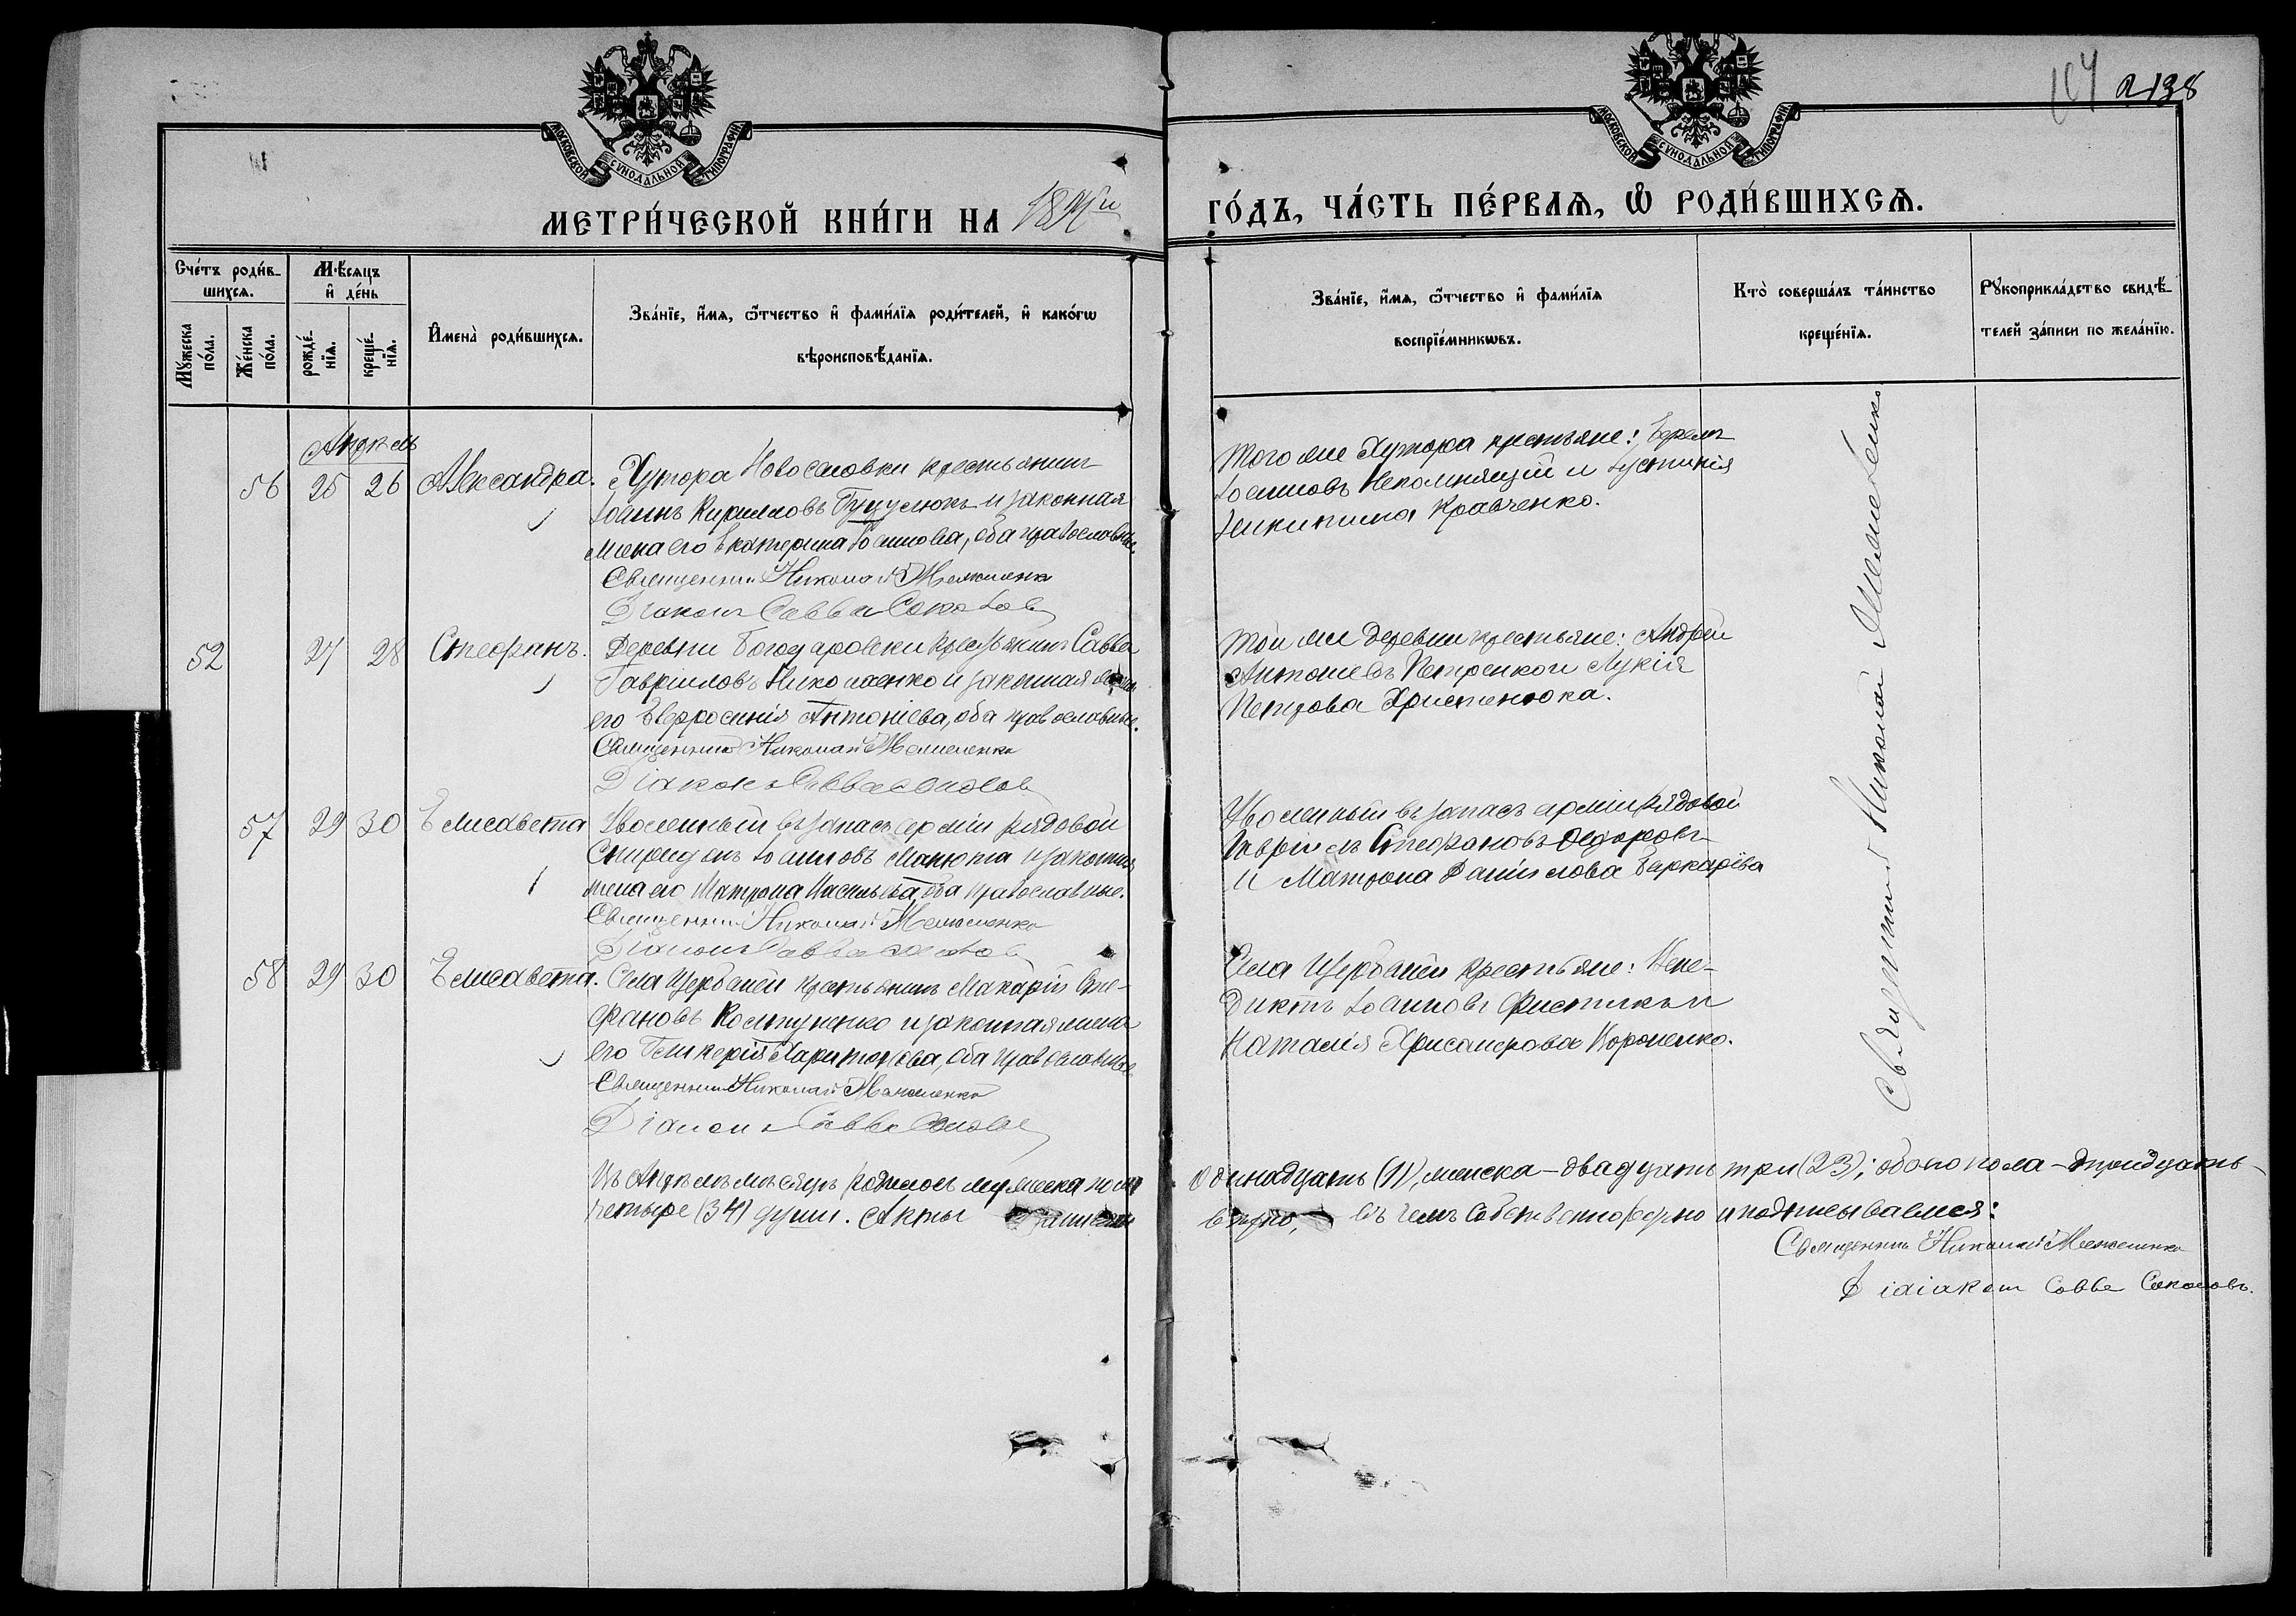 138
МОСКОВСКОЙ СУНОДАЛЬНОЙ ТИПОГРАФІИ
МОСКОВСКОЙ СУНОДАЛЬНОЙ ТИПОГРАФІИ
МЕТРИ́ЧЕСКОЙ КНИ́ГИ НА 18
ГО́ДЪ, ЧА́СТЬ ПЕ́РВАѦ, Ѽ РОДИ́ВШИХСѦ.
Сче́тъ роди́в-
шихсѧ.
Мѣ́сѧцъ
и҆ де́нь
Мꙋ́жеска по́ла.
Же́нска по́ла.
рожде́-нїѧ.
креще́-нїѧ.
И҆мена̀ роди́вшихсѧ.
Зва́нїе, и҆́мѧ, ѻ҆́тчество и҆ фами́лїѧ роди́телей, и҆ како́гѡ
вѣроисповѣ́данїѧ.
Зва́нїе, и҆́мѧ, ѻ҆́тчество и҆ фами́лїѧ
воспрїе́мникѡвъ.
Кто̀ соверша́лъ та́инство
креще́нїѧ.
Рꙋкоприкла́дство свидѣ́-
телей за́писи по жела́нїю.
Апрѣль
56 25 26 Александра. Хутора Новоселовки крестьянинъ
Іоаннъ Кирилловъ и законная
жена его Екатерина Іоаннова, оба православные.
Священникъ Николай Мельниченко
Діаконъ Савва Соколовъ
Того же Хутора крестьяне:
Іоанновъ Непомнящій и Іустинія
Никитина Кравченко.
52 27 28 Стефанъ. Деревни Богодаровки крестьянинъ Савва
Гавриловъ Николаенко и законная жена
его Евфросинія Антоніева, оба православные.
Священникъ Николай
Діаконъ Савва Соколовъ
Той же деревни крестьяне: Андрей
Антоніевъ Петренко и Лукія
Петрова Христенюка.
57 29 30 Елисавета Уволенный въ запасъ арміи рядовой
Спиридонъ Іоанновъ Манюта и законная
жена его Матрона Васильева, оба православные.
Священникъ Николай
Діаконъ Савва Соколовъ
Уволенный въ запасъ арміи рядовой
Гавріилъ Стефановъ Федоровъ
и Матрона Даніилова
58 29 30 Елисавета. Села Щербаней крестьянинъ Макарій Сте-
фановъ Колтуненко и законная жена
его Гликерія Харитонова, оба православные
Священникъ Николай
Діаконъ Савва Соколовъ
Села Щербаней крестьяне: Вене-
диктъ Іоанновъ Фистикъ и
Наталія Хрисанфова Вороненко.
Священникъ Николай
Въ Апрѣлѣ мѣсяцѣ родилось мужеска пола одинадцать (11), женска – двадцать три (23); обоего пола – тридцать
четыре (34) души. Акты вѣрно, въ чемъ собственноручно и подписываемся:
Священникъ Николай
Діаконъ Савва Соколовъ.